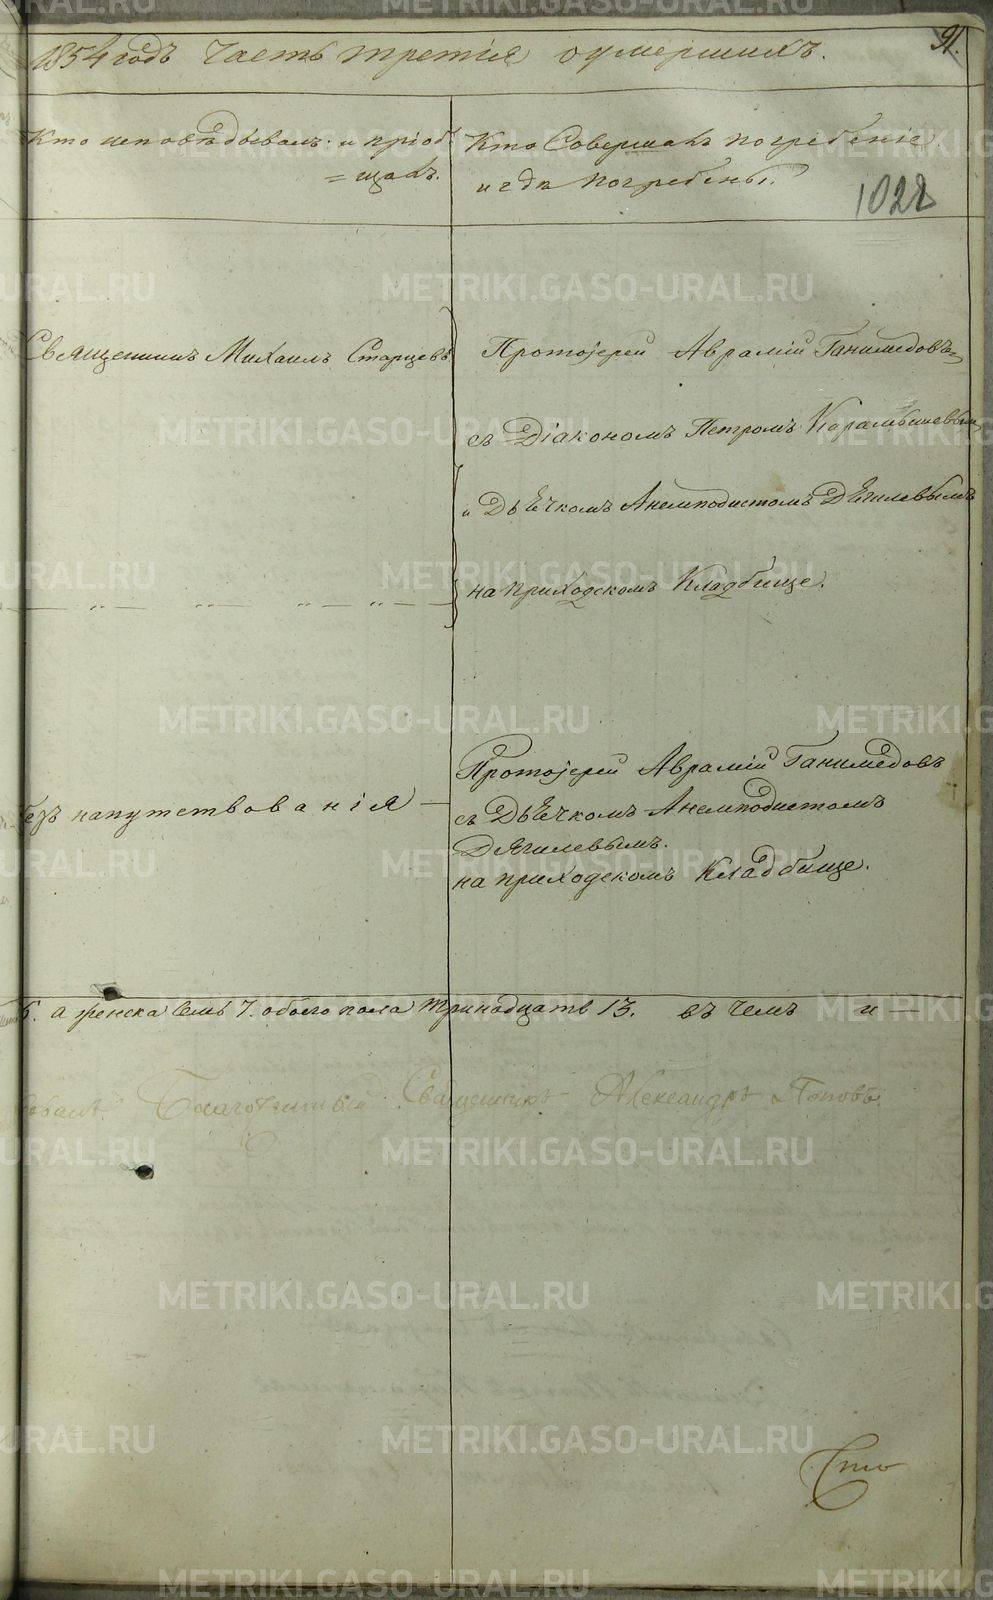 91.
1854 годъ Часть третія оумершихъ.
Кто исповѣдывалъ и пріоб
=щалъ.
Кто Совершалъ погребеніе
и гдѣ погребены.
1028
Священникъ Михаилъ Старцевъ
Протоіерей Аврамій Ганимедовъ
съ Діакономъ Петромъ Карамышевымъ
и Дьячкомъ Анемподистомъ Дягилевымъ
на приходскомъ Кладбище.
— „ — „ — „ — „ —
безъ напутствованія —
Протоіерей Аврамій Ганимедовъ
съ Дьячкомъ Анемподистомъ
Дягилевымъ.
на приходскомъ Кладбище.
6. а женска Семь 7. обоего пола Тринадцать 13. въ чемъ и —
Благочинный Священникъ Александръ Поповъ
Сто
METRIKI.GASO-URAL.RU